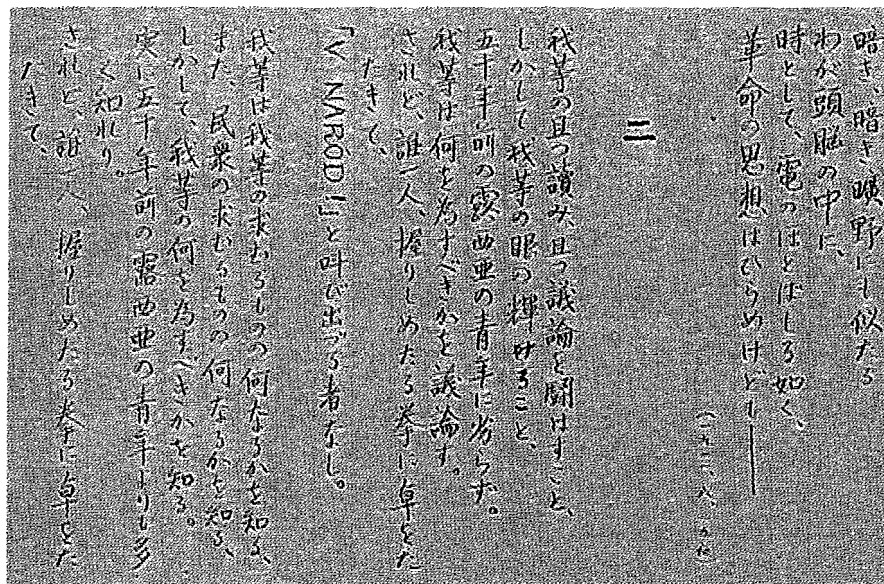 暗き、暗き曠野にも似たる
わが頭脳の中に、
時として、電のほとばしる如く、
革命の思想はひらめけども――
二
我等の且つ讀み、且つ議論を闘はすこと、
しかして我等の眼の輝けること、
五十年前の露西亜の青年に劣らず。
我等は何を為すべきかを議論す。
されど、誰一人、握りしめたる拳に卓をた
たきて、
「V NAROD!」と叫び出づる者なし。
我等は我等の求むるものの何なるかを知る、
また、民衆の求むるものの何なるかを知る、
しかして、我等の何を為すべきかを知る。
実に五十年前の露西亜の青年よりも多
く知れり。
されど、誰一人、握りしめたる拳に卓をた
たきて、